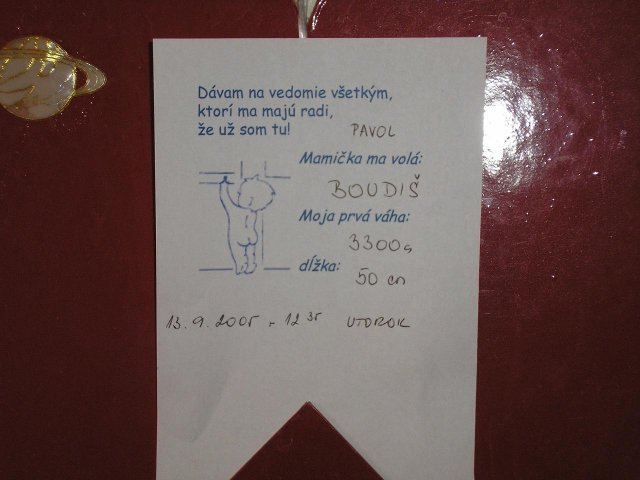 Dávam na vedomie všetkým,
ktorí ma majú radi,
že už som tu! PAVOL
Mamička ma volá:
BOUDIŠ
Moja prvá váha:
3300g
dĺžka: 50 cm
13.9.2005 - 12 35 UTOROK